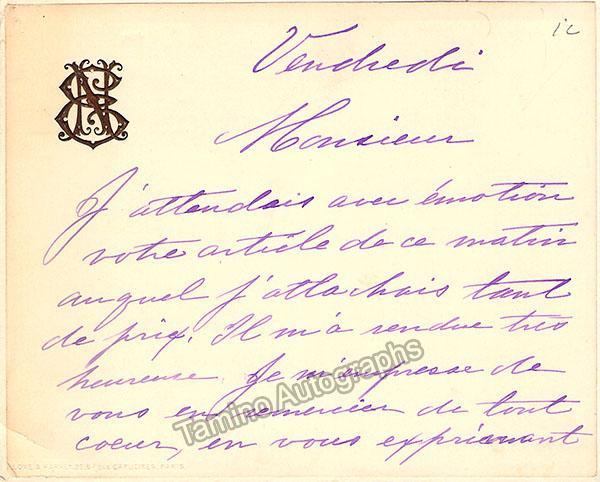 ic
Vendredi
Monsieur
J'attendais avec émotion
votre article de ce matin
auquel j'attachais tant
de prix. Il m'a rendue très
heureuse. Je m'empresse de
vous en remercier de tout
coeur, en vous exprimant
Tamino Autographs